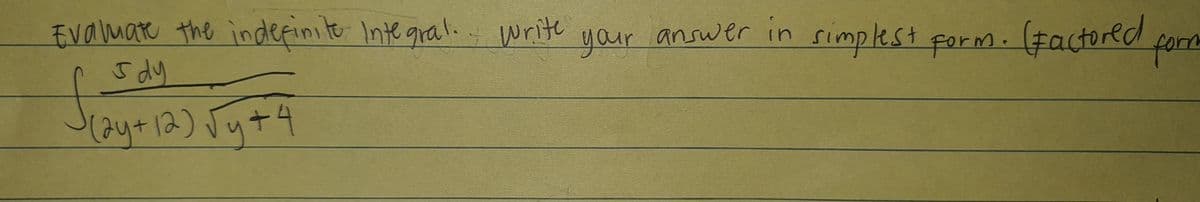 Evaluate the indefinite Integral. Write your answer in simplest form. (Factored form
∫ 5 dy
(2y+12) √y+4